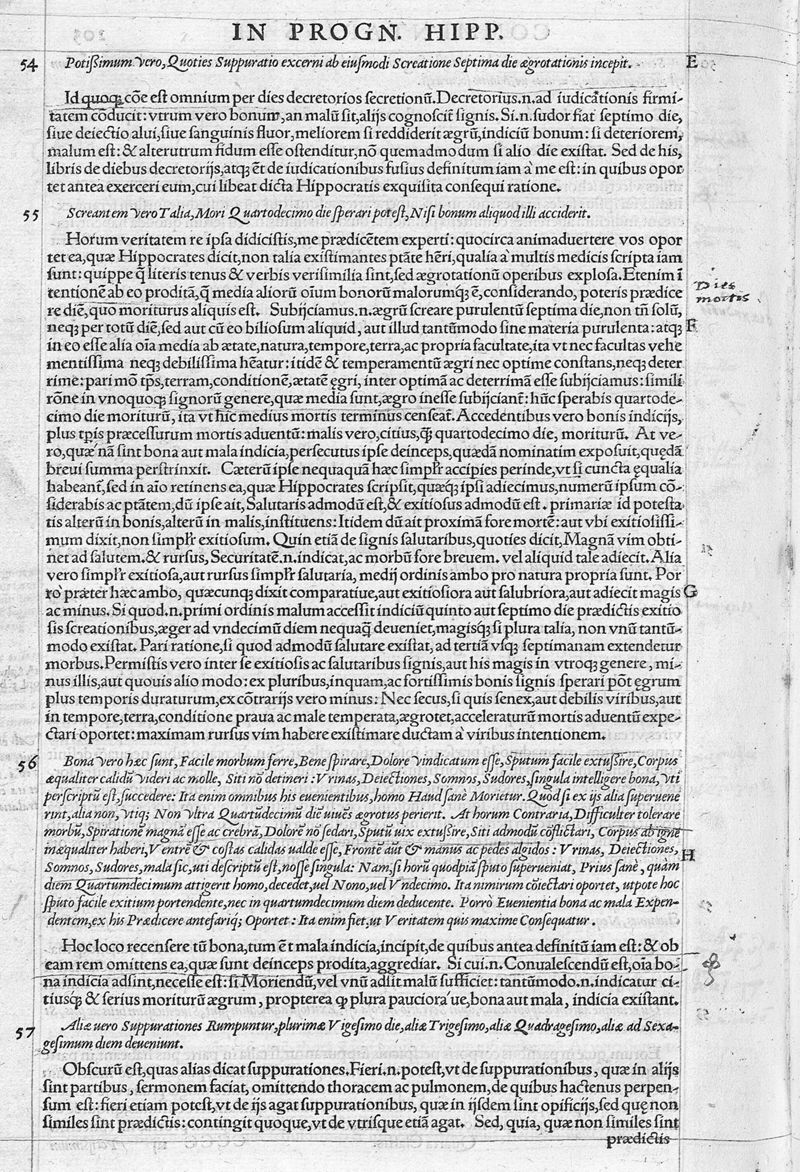 IN PROGN. HIPP.
54 Potißimum vero, Quoties Suppuratio excerni ab eiusmodi Screatione Septima die ægrotationis incepit. E
Id quoq; cõe est omnium per dies decretorios secretionũ. Decretorius .n. ad iudicationis firmi-
tatem cõducit: vtrum vero bonum, an malũ sit, alijs cognoscit̃ signis. Si .n. sudor fiat septimo die,
siue deiectio alui, siue sanguinis fluor, meliorem si reddiderit ægrũ, indiciũ bonum: si deteriorem,
malum est: & alterutrum fidum esse ostenditur, nõ quemadmodum si alio die existat. Sed de his,
libris de diebus decretorijs, atq; ẽt de iudicationibus fusius definitum iam à me est: in quibus opor
tet antea exerceri eum, cui libeat dicta Hippocratis exquisita consequi ratione.
55 Screantem vero Talia, Mori Quartodecimo die sperari potest, Nisi bonum aliquod illi acciderit.
Horum veritatem re ipsa didicistis, me prædicẽtem experti: quocirca animaduertere vos opor
tet ea, quæ Hippocrates dicit, non talia existimantes ptãte hẽri, qualia à multis medicis scripta iam
sunt: quippe q̃ literis tenus & verbis verisimilia sint, sed ægrotationũ operibus explosa. Etenim ĩ
tentionẽ ab eo proditã, q̃ media aliorũ oĩum bonorũ malorumq́; ẽ, considerando, poteris prædice
re diẽ, quo moriturus aliquis est. Subijciamus .n. ægrũ screare purulentũ septima die, non tñ solũ,
neq; per totũ diẽ, sed aut cũ eo biliosum aliquid, aut illud tantũmodo sine materia purulenta: atq; F
in eo esse alia oĩa media ab ætate, natura, tempore, terra, ac propria facultate, ita vt nec facultas vehe
mentissima neq; debilissima hẽatur: itidẽ & temperamentũ ægri nec optime constans, neq; deter
rime: pari mõ tp̃s, terram, conditionẽ, ætatẽ ęgri, inter optimã ac deterrimã esse subijciamus: simili
rõne in vnoquoq; signorũ genere, quæ media sunt, ægro inesse subijciant̃: hũc sperabis quartode-
cimo die moriturũ, ita vt hic medius mortis terminus censeat̃. Accedentibus vero bonis indicijs,
plus tp̃is præcessurum mortis aduentũ: malis vero, citius, q̃ quartodecimo die, moriturũ. At ve-
ro, quæ nã sint bona aut mala indicia, persecutus ipse deinceps, quædã nominatim exposuit, quędã
breui summa perstrinxit. Cæterũ ipse nequaquã hæc simplr̃ accipies perinde, vt si cuncta ęqualia
habeant̃, sed in aĩo retinens ea, quæ Hippocrates scripsit, quæq; ipsi adiecimus, numerũ ipsum cõ-
siderabis ac ptãtem, dũ ipse ait, Salutaris admodũ est, & exitiosus admodũ est. primariæ id potesta
tis alterũ in bonis, alterũ in malis, instituens: Itidem dũ ait proximã fore mortẽ: aut vbi exitiosissi-
mum dixit, non simplr̃ exitiosum. Quin etiã de signis salutaribus, quoties dicit, Magnã vim obti-
net ad salutem. & rursus, Securitatẽ .n. indicat, ac morbũ fore breuem. vel aliquid tale adiecit. Alia
vero simplr̃ exitiosa, aut rursus simplr̃ salutaria, medij ordinis ambo pro natura propria sunt. Por
rò præter hæc ambo, quæcunq; dixit comparatiue, aut exitiosiora aut salubriora, aut adiecit magis G
ac minus. Si quod .n. primi ordinis malum accessit indiciũ quinto aut septimo die prædictis exitio
sis screationibus, æger ad vndecimũ diem nequaq̃ deueniet, magisq́; si plura talia, non vnũ tantũ-
modo existat. Pari ratione, si quod admodũ salutare existat, ad tertiã vsq; septimanam extendetur
morbus. Permistis vero inter se exitiosis ac salutaribus signis, aut his magis in vtroq; genere, mi-
nus illis, aut quouis alio modo: ex pluribus, inquam, ac fortissimis bonis signis sperari põt ęgrum
plus temporis duraturum, ex cõtrarijs vero minus: Nec secus, si quis senex, aut debilis viribus, aut
in tempore, terra, conditione praua ac male temperata, ægrotet, acceleraturũ mortis aduentũ expe-
ctari oportet: maximam rursus vim habere existimare ductam à viribus intentionem.
56 Bona vero hæc sunt, Facile morbum ferre, Bene spirare, Dolore vindicatum esse, Sputum facile extussire, Corpus
æqualiter calidũ videri ac molle, Siti nõ detineri: Vrinas, Deiectiones, Somnos, Sudores, singula intelligere bona, vti
perscriptũ est, succedere: Ita enim omnibus his euenientibus, homo Haud sanè Morietur. Quod si ex ijs alia superuene
rint, alia non, vtiq; Non vltra Quartũdecimũ diẽ viuẽs ægrotus perierit. At horum Contraria, Difficulter tolerare
morbũ, Spirationẽ magnã esse ac crebrã, Dolorẽ nõ sedari, Sputũ uix extussire, Siti admodũ cõflictari, Corpus ab igne
inæqualiter haberi, Ventrẽ & costas calidas ualde esse, Frontẽ aũt & manus ac pedes algidos: Vrinas, Deiectiones, H
Somnos, Sudores, mala sic, uti descriptũ est, nosse singula: Nam, si horũ quodpiã sputo superueniat, Prius sanè, quàm
diem Quartumdecimum attigerit homo, decedet, uel Nono, uel Vndecimo. Ita nimirum cõiectari oportet, utpote hoc
sputo facile exitium portendente, nec in quartumdecimum diem deducente. Porrò Euenientia bona ac mala Expen-
dentem, ex his Prædicere antefariq; Oportet: Ita enim fiet, ut Veritatem quis maxime Consequatur.
Hoc loco recensere tũ bona, tum ẽt mala indicia, incipit, de quibus antea definitũ iam est: & ob
eam rem omittens ea, quæ sunt deinceps prodita, aggrediar. Si cui .n. Conualescendũ est, oĩa bo-
na indicia adsint, necesse est: si Moriendũ, vel vnũ adsit malũ sufficiet: tantũmodo .n. indicatur ci-
tiusq́; & serius moriturũ ægrum, propterea q̃ plura paucioraue, bona aut mala, indicia existant.
57 Aliæ uero Suppurationes Rumpuntur, plurimæ Vigesimo die, aliæ Trigesimo, aliæ Quadragesimo, aliæ ad Sexa-
gesimum diem deueniunt.
Obscurũ est, quas alias dicat suppurationes. Fieri .n. potest, vt de suppurationibus, quæ in alijs
sint partibus, sermonem faciat, omittendo thoracem ac pulmonem, de quibus hactenus perpen-
sum est: fieri etiam potest, vt de ijs agat suppurationibus, quæ in ijsdem sint opificijs, sed quę non
similes sint prædictis: contingit quoque, vt de vtrisque etiã agat. Sed, quia, quæ non similes sint
prædictis
Dies
mortis